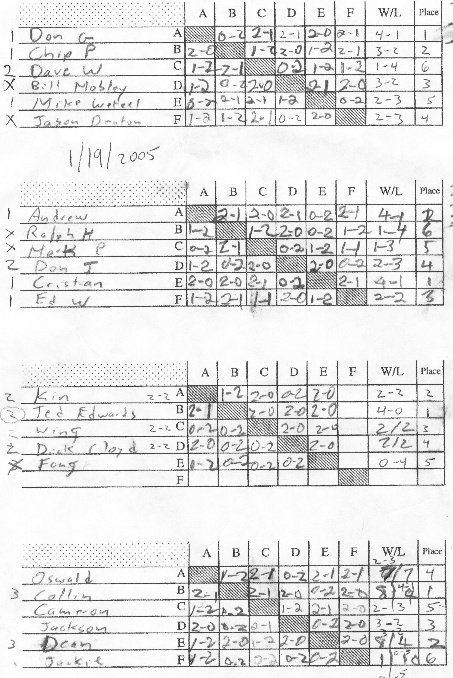 A B C D E F W/L Place
1 Don G A 0-2 2-1 2-1 2-0 2-1 4-1 1
1 Chip P B 2-0 1-2 2-0 1-2 2-1 3-2 2
2 Dave W C 1-2 2-1 0-2 1-2 1-2 1-4 6
X Bill Mobley D 1-2 0-2 2-0 2-1 2-0 3-2 3
1 Mike E 0-2 2-1 2-1 1-2 0-2 2-3 5
X Jason Deaton F 1-2 1-2 2-1 0-2 2-0 2-3 4
1/19/2005
A B C D E F W/L Place
1 Andrew A 2-1 2-0 2-1 0-2 2-1 4-1 2
X Ralph H B 1-2 1-2 2-0 0-2 1-2 1-4 6
X Mark P C 0-2 2-1 0-2 1-2 1-1 1-3 5
2 Don J D 1-2 0-2 2-0 2-0 0-2 2-3 4
1 Cristian E 2-0 2-0 2-1 0-2 2-1 4-1 1
1 Ed W F 1-2 2-1 1-1 2-0 1-2 2-2 3
A B C D E F W/L Place
2 Kin 2-2 A 1-2 2-0 0-2 2-0 2-2 2
2 Ted Edwards B 2-1 2-0 2-0 2-0 4-0 1
Wing 2-2 C 0-2 0-2 2-0 2-0 2/2 3
2 Dick Cloyd 2-2 D 2-0 0-2 0-2 2-0 2/2 4
X Fong E 0-2 0-2 0-2 0-2 0-4 5
F
A B C D E F W/L Place
Oswald A 1-2 2-1 0-2 2-1 2-1 2-3 7/7 4
3 Collin B 2-1 2-1 2-0 0-2 2-0 8 1
Cameron C 1-2 1-2 1-2 2-1 2-0 2-3 5
Jackson D 2-0 0-2 2-1 0-2 2-0 3-2 3
3 Dean E 1-2 2-0 1-2 2-0 2-0 8/4 2
Jackie F 1-2 0-2 0-2 0-2 0-2 6